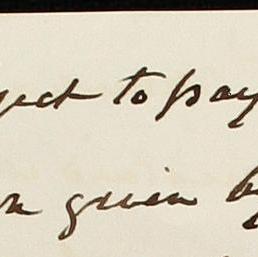 ject to pay
on given by